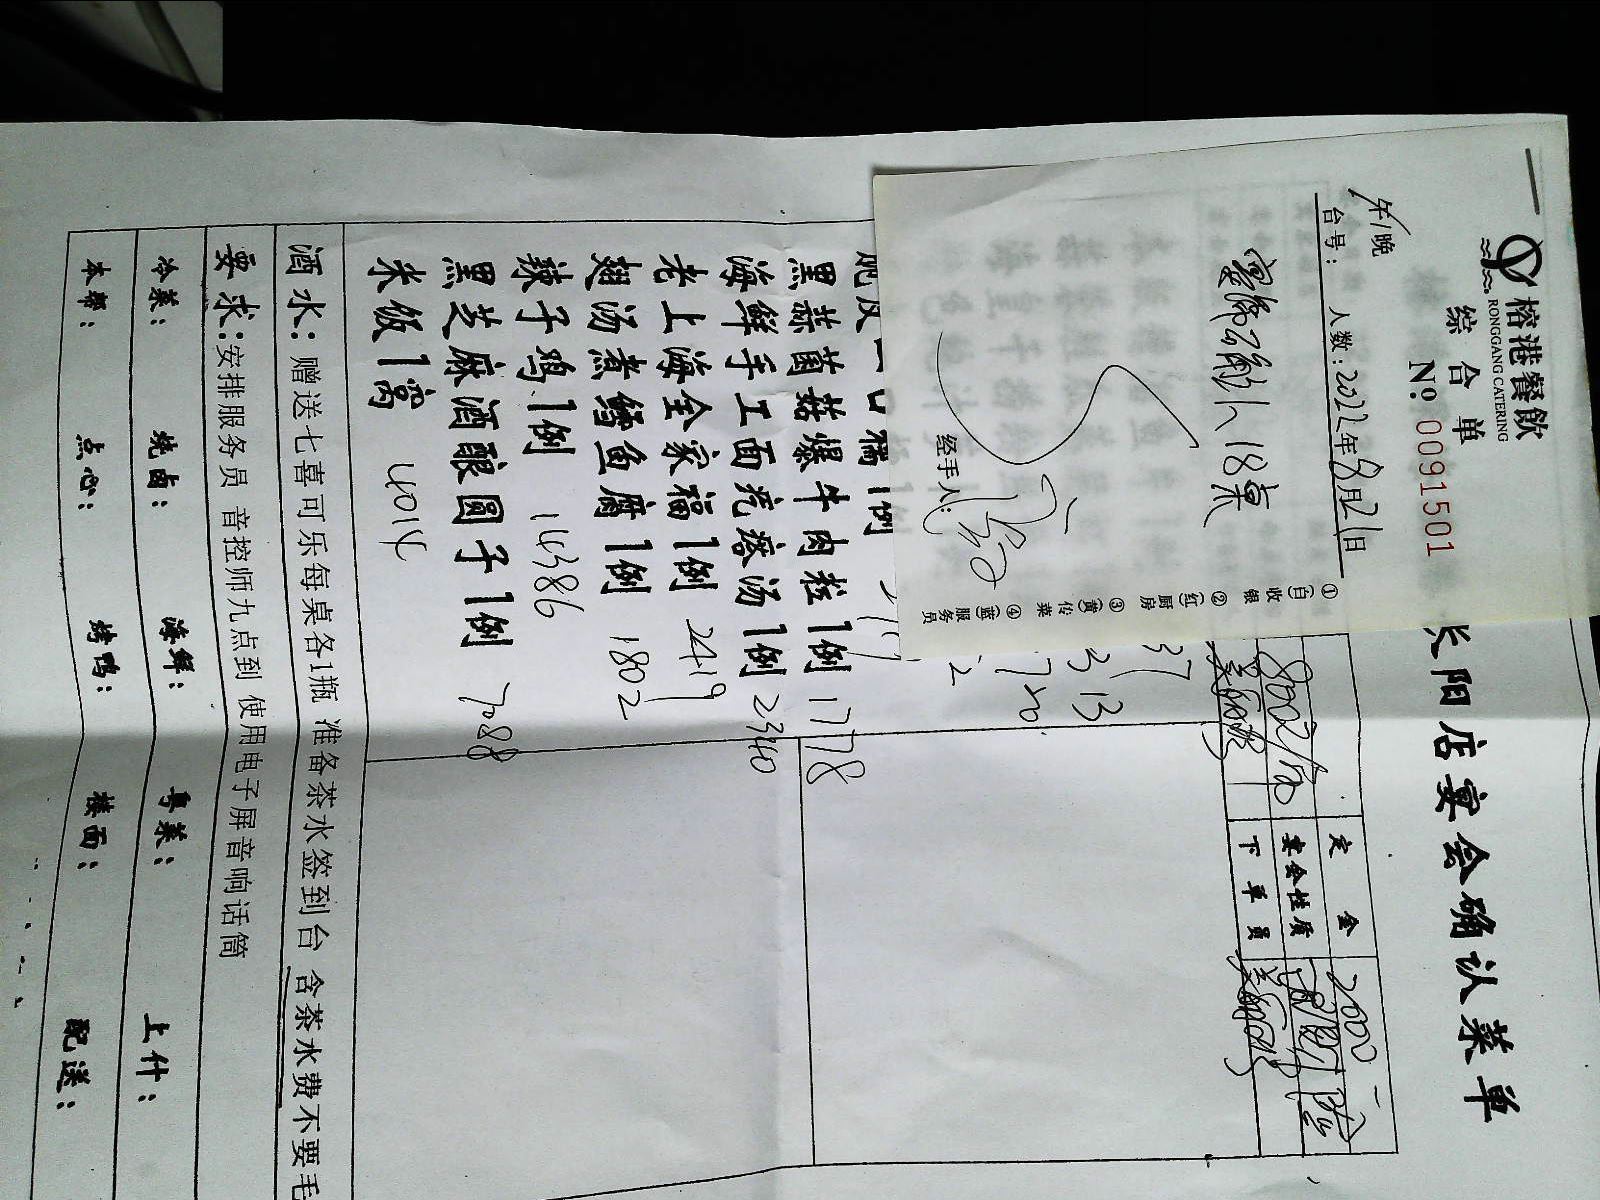 榕港餐飲
RONGGANG CATERING
综合单
No.0091501
午/晚
台号： 人数：2022年8月21日
18桌
经手人：
①(白)收银
②(红)厨房
③(黄)传菜
④(蓝)服务员
长阳店宴会确认菜单
定金 2600
宴会性质
下单员
37
313
黑蒜菌菇爆牛肉粒1例 1778
海鲜手工面疙瘩汤1例 2340
老上海全家福1例 2419
翅汤煮鳕鱼腐1例 1802
辣子鸡1例 14386
黑芝麻酒酿圆子1例 7088
米饭1窝 4014
酒水：赠送七喜可乐每桌各1瓶 准备茶水签到台 含茶水费不要毛
要求：安排服务员 音控师九点到 使用电子屏音响话筒
冷菜： 烧卤： 海鲜： 粤菜： 上什：
本帮： 点心： 烤鸭： 楼面： 配送：